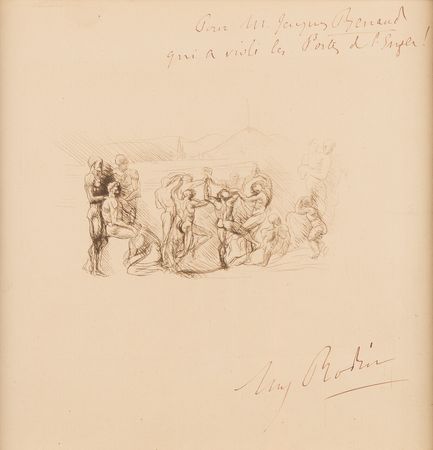 Pour M. Jacques Renaud
qui a violé les Portes de l'Enfer!
Aug Rodin